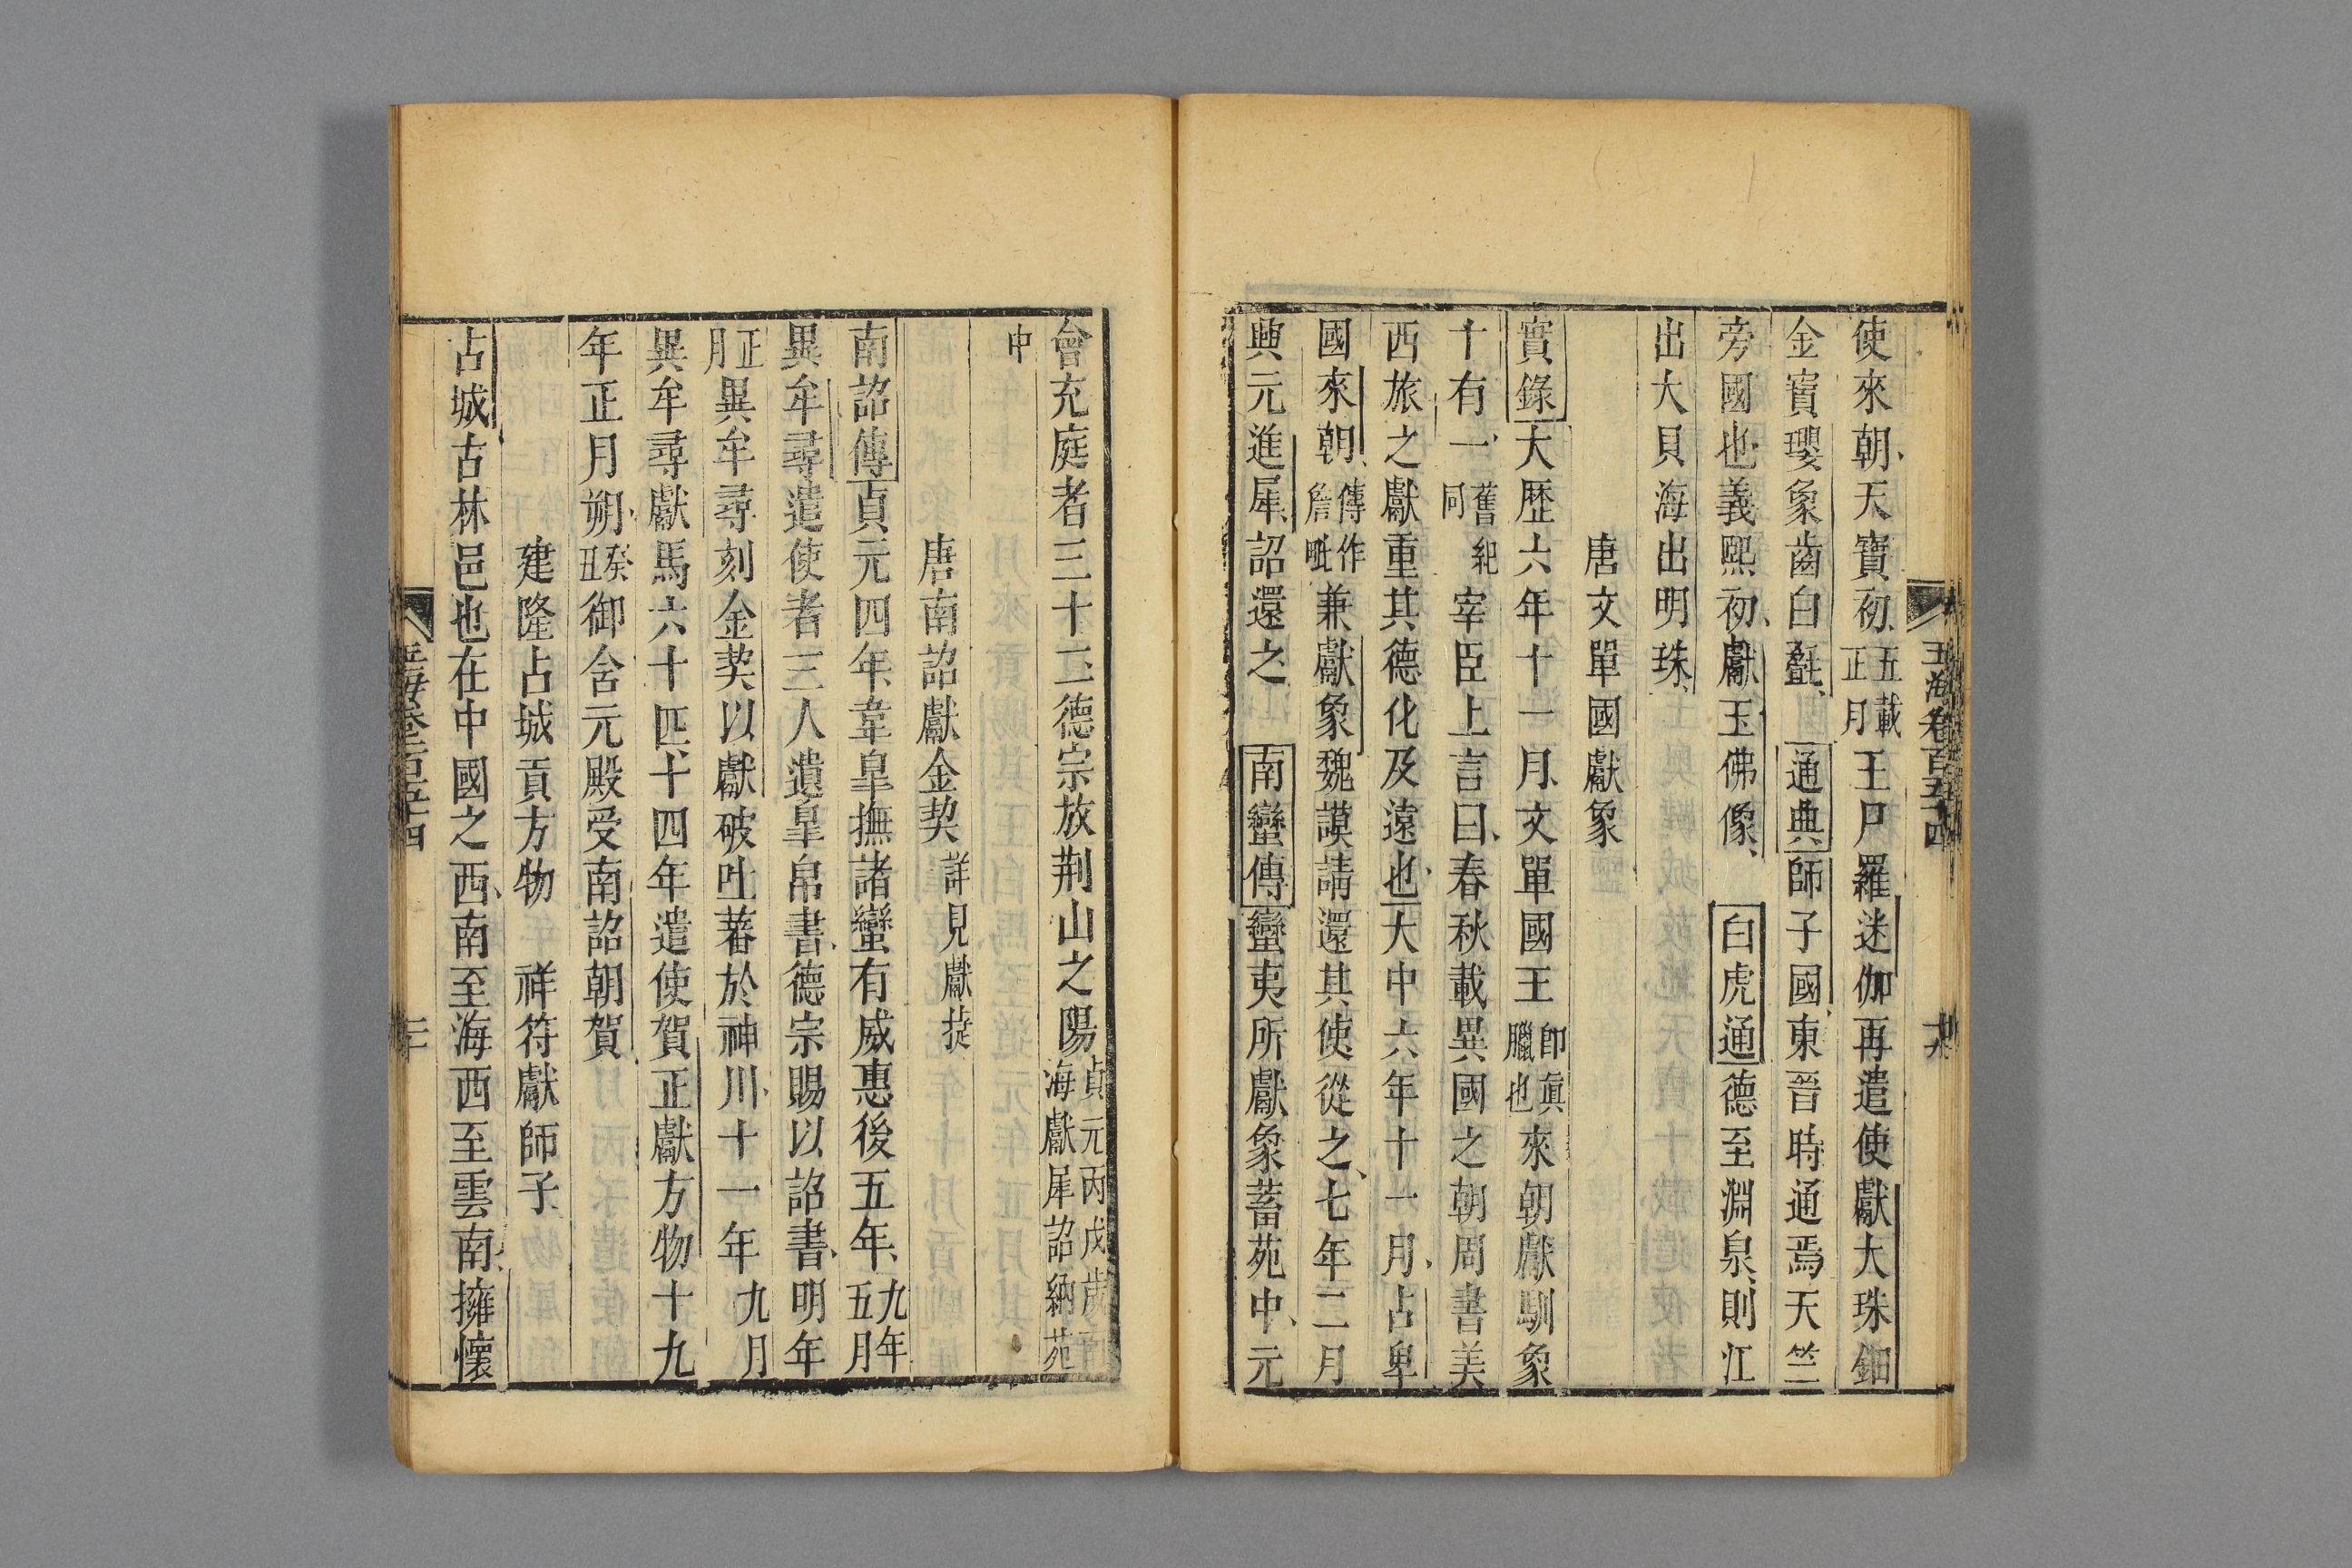 使來朝天寶初五載正月王尸羅迷伽再遣使獻大珠鈿
金寳瓔象齒白㲲 通典師子國東晉時通焉天竺
旁國也義熙初獻玉佛像 白虎通德至淵泉則江
出大貝海出明珠
唐文單國獻象
實錄大歷六年十一月文單國王卽真臘也來朝獻馴象
十有一舊紀同宰臣上言曰春秋載異國之朝周書美
西旅之獻重其德化及遠也大中六年十一月占卑
國來朝傳作詹毗兼獻象魏謨請還其使從之七年二月
興元進犀詔還之 南蠻傳蠻夷所獻象蓄苑中元
會充庭者三十二德宗放荆山之陽貞元丙戌歲南海獻犀詔納苑
中
唐南詔獻金契詳見獻捷
南詔傳貞元四年韋臯撫諸蠻有威惠後五年九年五月
異牟尋遣使者三人遺臯帛書德宗賜以詔書明年
正月異牟尋刻金契以獻破吐蕃於神川十一年九月
異牟尋獻馬六十匹十四年遣使賀正獻方物十九
年正月朔癸丑御含元殿受南詔朝賀
建隆占城貢方物 祥符獻師子
占城古林邑也在中國之西南至海西至雲南擁懷
玉海卷百五十四